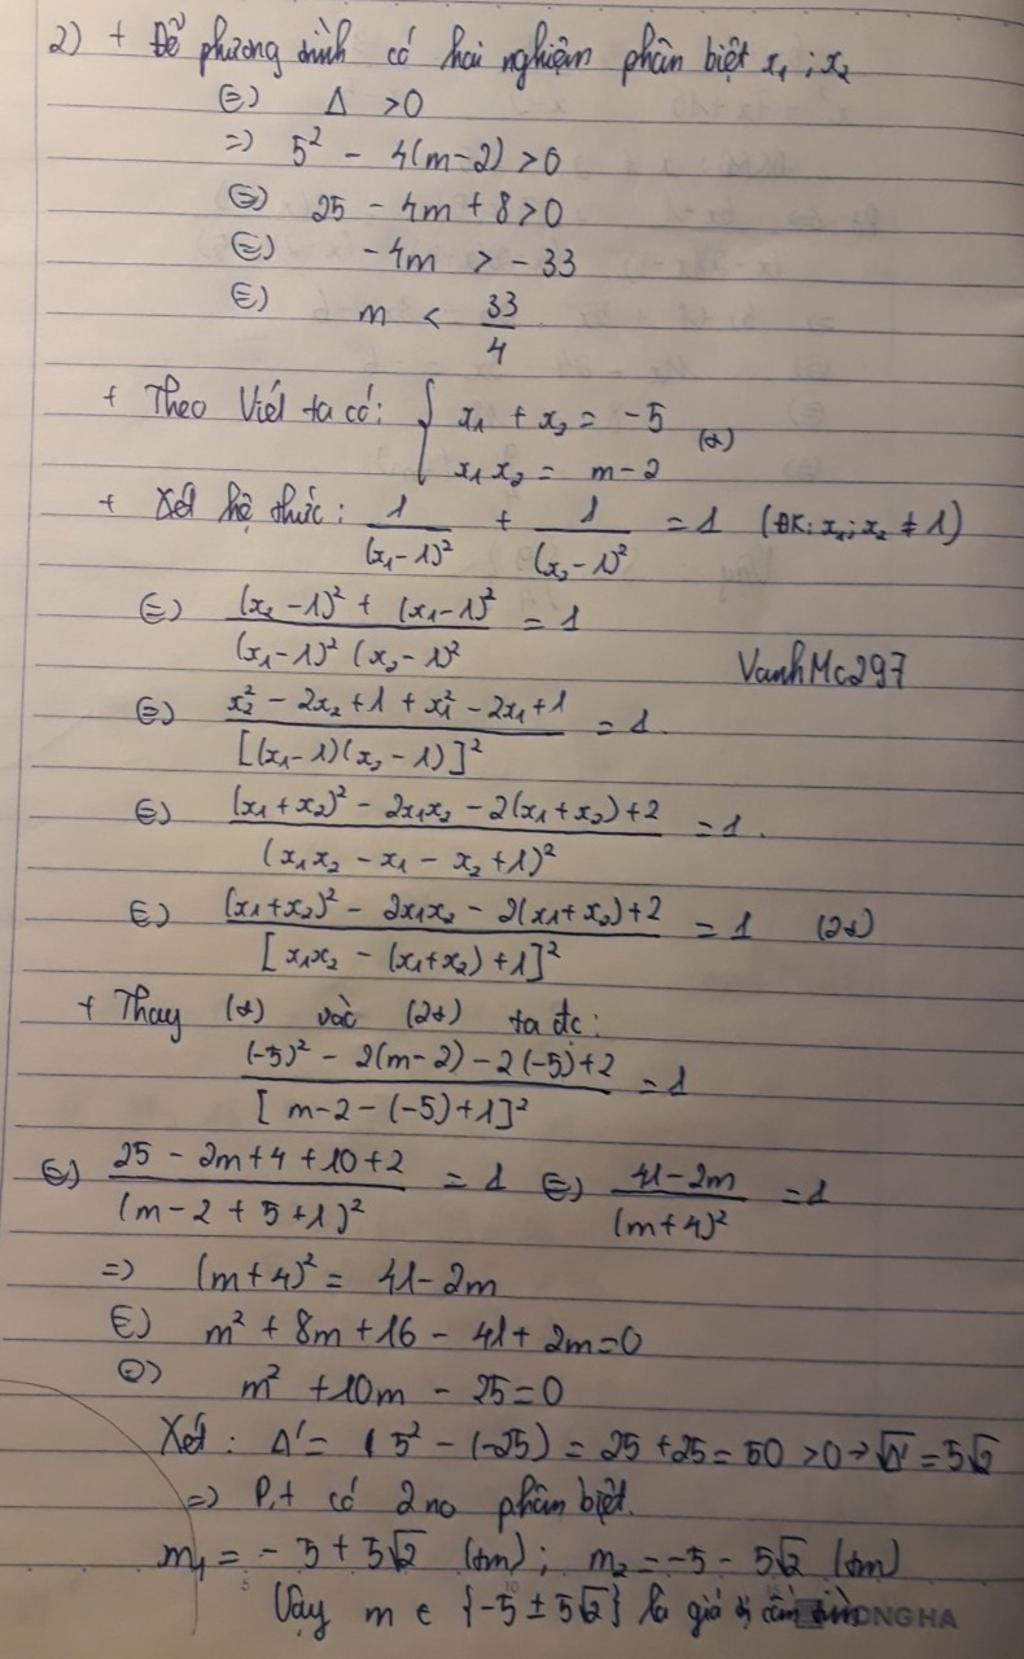 2) + Để phương trình có hai nghiệm phân biệt x₁ ; x₂
⇔ Δ > 0
=> 5² - 4(m-2) > 0
⇔ 25 - 4m + 8 > 0
⇔ -4m > -33
⇔ m < 33/4
+ Theo Viét ta có: { x₁ + x₂ = -5
x₁x₂ = m-2 (*)
+ Xét hệ thức: 1/(x₁-1)² + 1/(x₂-1)² = 1 (ĐK: x₁; x₂ ≠ 1)
⇔ ((x₂-1)² + (x₁-1)²)/((x₁-1)² (x₂-1)²) = 1
VanhMc297
⇔ (x₂² - 2x₂ + 1 + x₁² - 2x₁ + 1)/[(x₁-1)(x₂-1)]² = 1.
⇔ ((x₁+x₂)² - 2x₁x₂ - 2(x₁+x₂) + 2)/(x₁x₂ - x₁ - x₂ + 1)² = 1.
⇔ ((x₁+x₂)² - 2x₁x₂ - 2(x₁+x₂) + 2)/[x₁x₂ - (x₁+x₂) + 1]² = 1 (2*)
+ Thay (*) vào (2*) ta đc:
((-5)² - 2(m-2) - 2(-5) + 2)/[m-2-(-5)+1]² = 1
⇔ (25 - 2m + 4 + 10 + 2)/(m-2+5+1)² = 1 ⇔ (41-2m)/(m+4)² = 1
=> (m+4)² = 41-2m
⇔ m² + 8m + 16 - 41 + 2m = 0
⇔ m² + 10m - 25 = 0
Xét: Δ' = (5² - (-25) = 25 + 25 = 50 > 0 → √Δ' = 5√2
=> P.t có 2 no phân biệt.
m₁ = -5 + 5√2 (tm); m₂ = -5 - 5√2 (tm)
Vậy m ∈ {-5 ± 5√2} là giá trị cần tìm
ONG HA